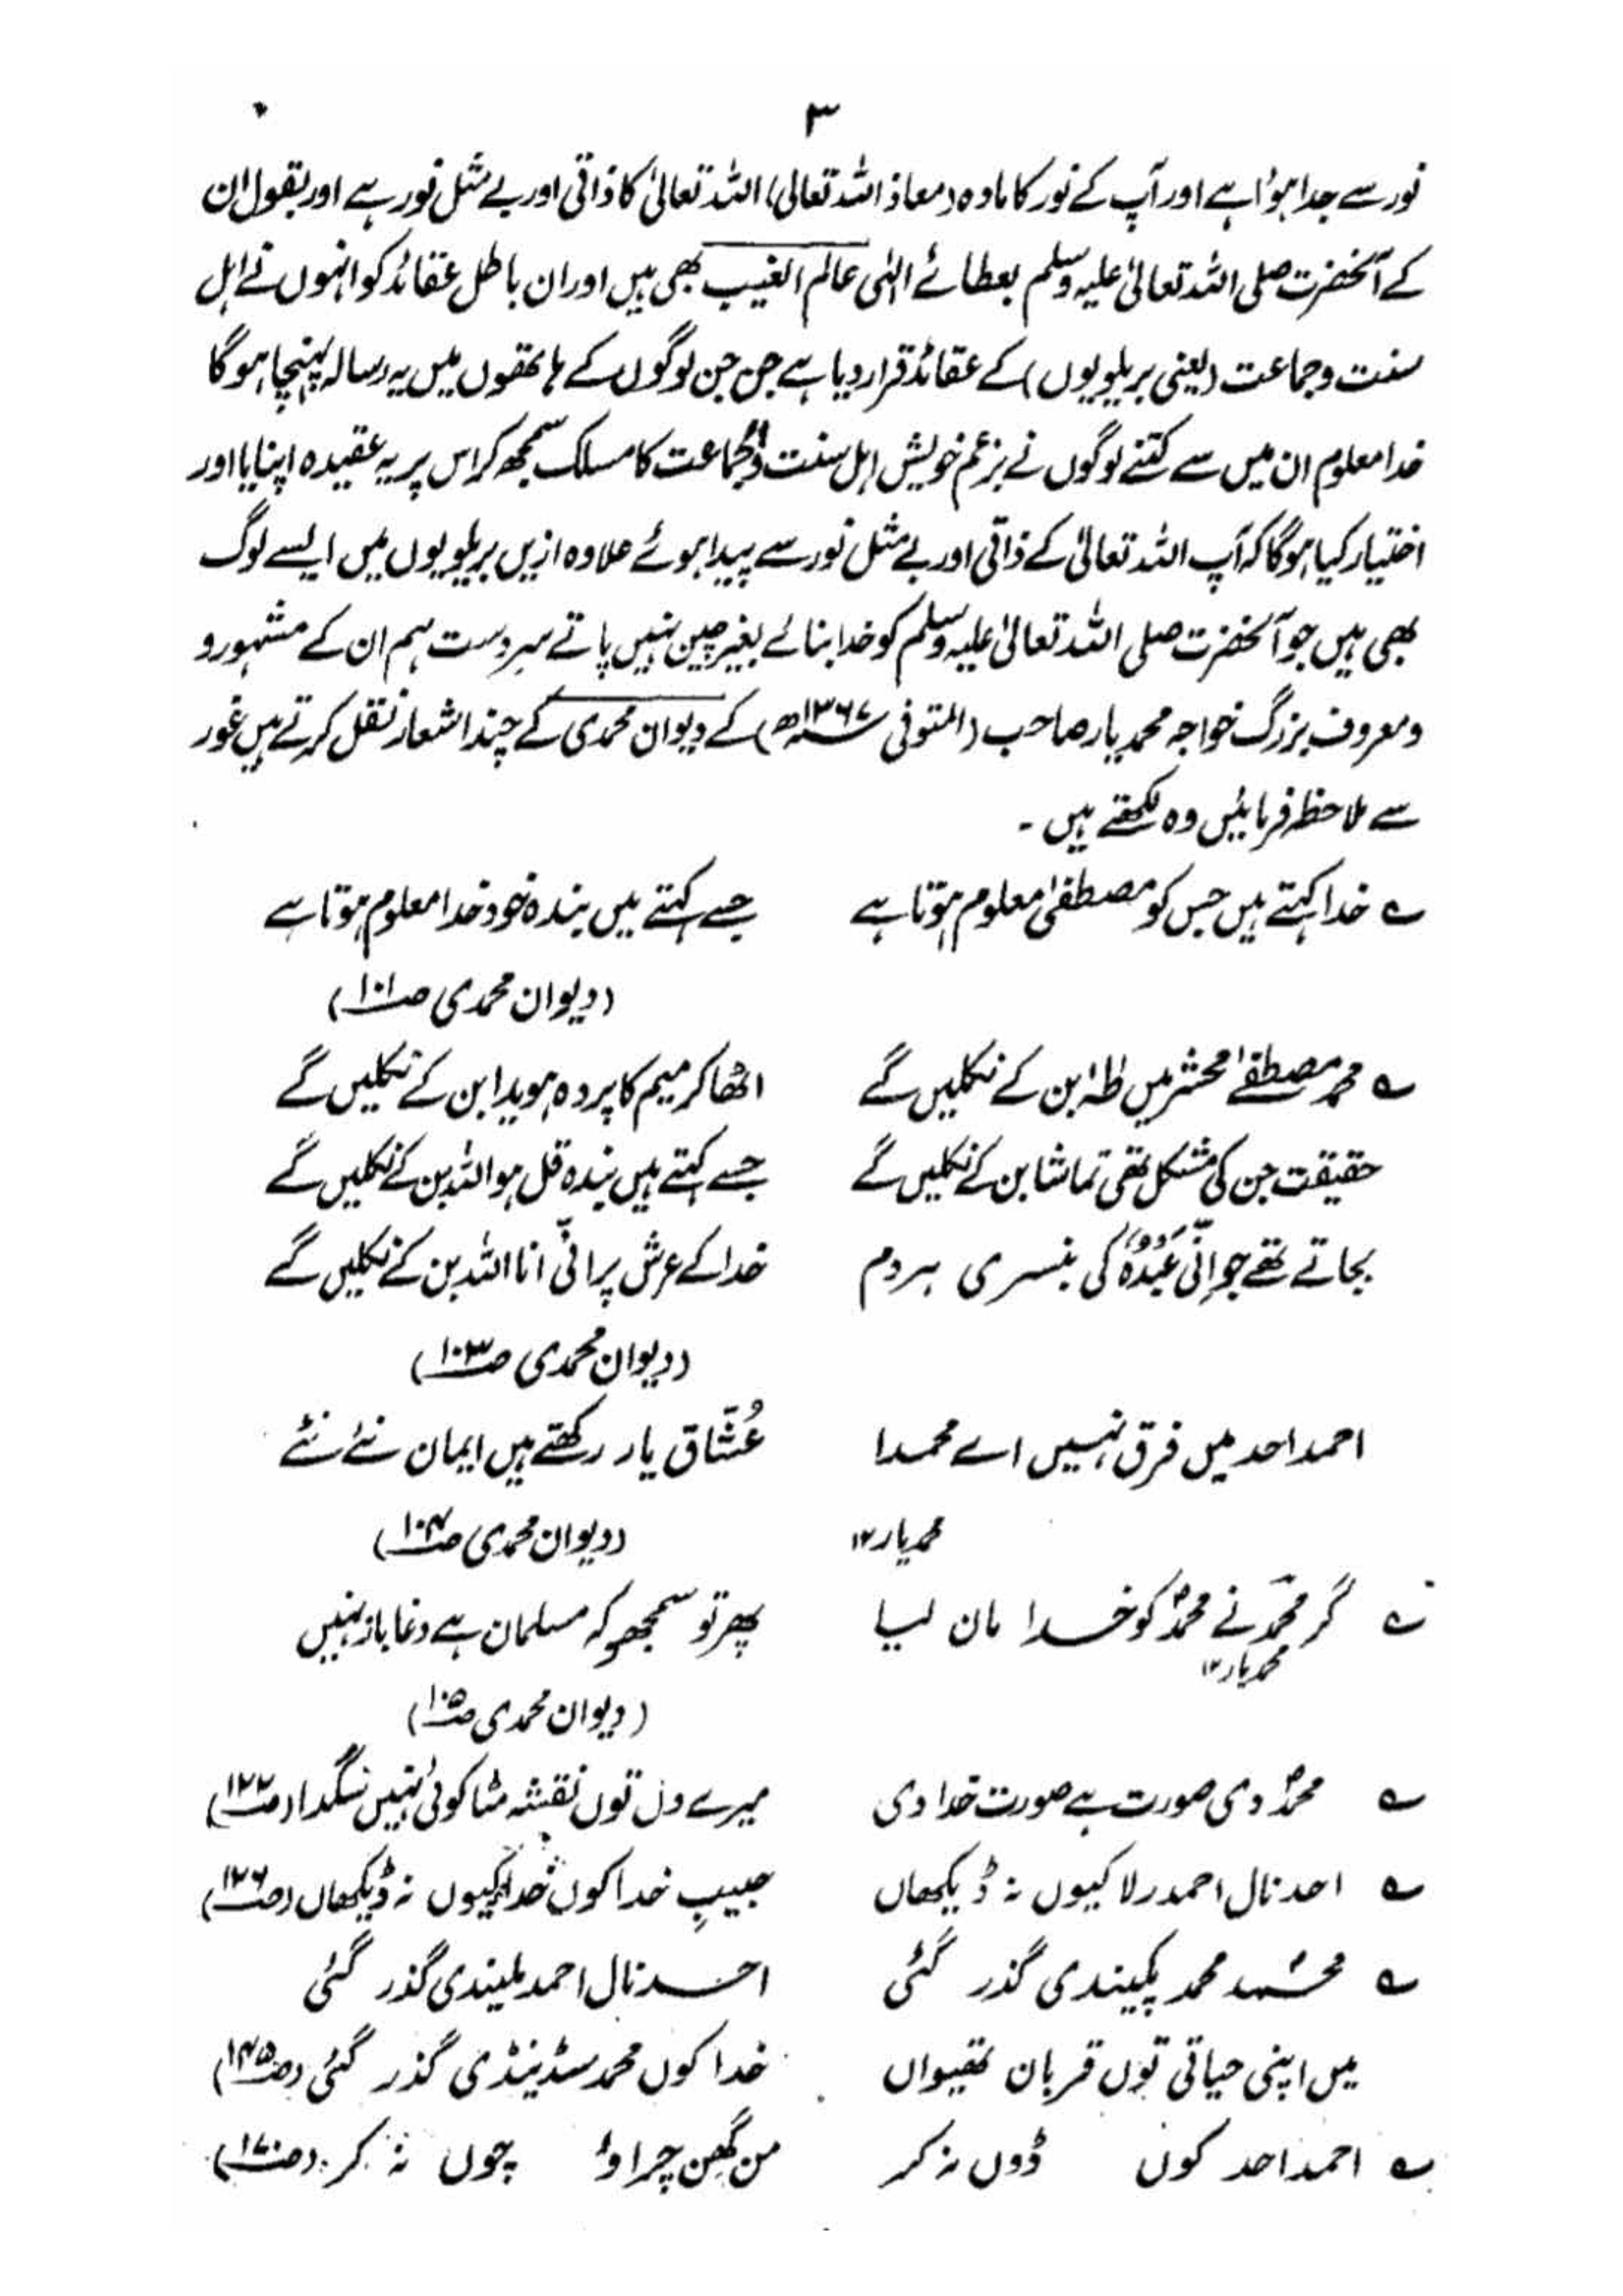 ۳
نور سے جدا ہوُا ہے اور آپ کے نور کا مادہ (معاذ اللہ تعالیٰ) اللہ تعالیٰ کا ذاتی اور بے مثل نور ہے اور بقول ان
کے آنحضرت صلی اللہ تعالیٰ علیہ وسلم بعطائے الہٰی عالم الغیب بھی ہیں اور ان باطل عقائد کو انہوں نے اہل
سنت وجماعت (یعنی بریلویوں) کے عقائد قرار دیا ہے جن جن لوگوں کے ہاتھوں میں یہ رسالہ پہنچا ہوگا
خدا معلوم ان میں سے کتنے لوگوں نے بزعم خویش اہل سنت والجماعت کا مسلک سمجھ کر اس پر یہ عقیدہ اپنایا اور
اختیار کیا ہوگا کہ آپ اللہ تعالیٰ کے ذاتی اور بے مثل نور سے پیدا ہوئے علاوہ ازیں بریلویوں میں ایسے لوگ
بھی ہیں جو آنحضرت صلی اللہ تعالیٰ علیہ وسلم کو خدا بنائے بغیر چین نہیں پاتے سر دست ہم ان کے مشہور و
ومعروف بزرگ خواجہ محمد یار صاحب (المتوفی ۱۳۶۷ھ) کے دیوان محمدی کے چند اشعار نقل کرتے ہیں غور
سے ملاحظہ فرمائیں وہ لکھتے ہیں ۔
؎ خدا کہتے ہیں جس کو مصطفیٰ معلوم ہوتا ہے جسے کہتے ہیں بندہ خود خدا معلوم ہوتا ہے
(دیوان محمدی صـ۱۰۱)
؎ محمد مصطفےٰ محشر میں طٰہٰ بن کے نکلیں گے اٹھا کر میم کا پردہ ہویدا بن کے نکلیں گے
حقیقت جن کی مشکل تھی تماشا بن کے نکلیں گے جسے کہتے ہیں بندہ قل ہو اللہ بن کے نکلیں گے
بجاتے تھے جو اِنِّی عَبْدُہٗ کی بنسری ہر دم خدا کے عرش پر انِّی انا اللہ بن کے نکلیں گے
(دیوان محمدی صـ۱۰۳)
احمد احد میں فرق نہیں اے محمدا عُشّاق یار رکھتے ہیں ایمان نئے نئے
محمد یار ۱۲ (دیوان محمدی صـ۱۰۴)
؎ گر محمدؔ نے محمدؐ کو خدا مان لیا پھر تو سمجھو کہ مسلمان ہے دغا باز نہیں
محمد یار ۱۲
(دیوان محمدی صـ۱۰۵)
؎ محمدؐ دی صورت ہے صورت خدا دی میرے دل توں نقشہ مٹا کوئی نہیں سگدا (صـ۱۲۲)
؎ احد نال احمد رلا کیوں نہ ڈیکھاں حبیبِ خدا کوں خدا کیوں نہ ڈیکھاں (صـ۱۲۶)
؎ محمد محمد پکیندی گذر گئی احد نال احمد ملیندی گذر گئی
میں اپنی حیاتی توں قربان تھیواں خدا کوں محمد سڈینڈی گذر گئی (صـ۱۴۵)
؎ احمد احد کوں ڈوں نہ کر من گھن چرا وٗ چوں نہ کر (صـ۱۷۰)